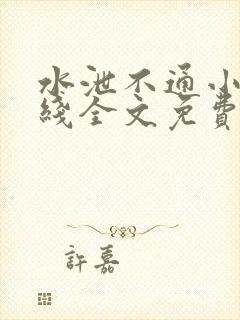 水泄不通小
綫全文免費
許嘉